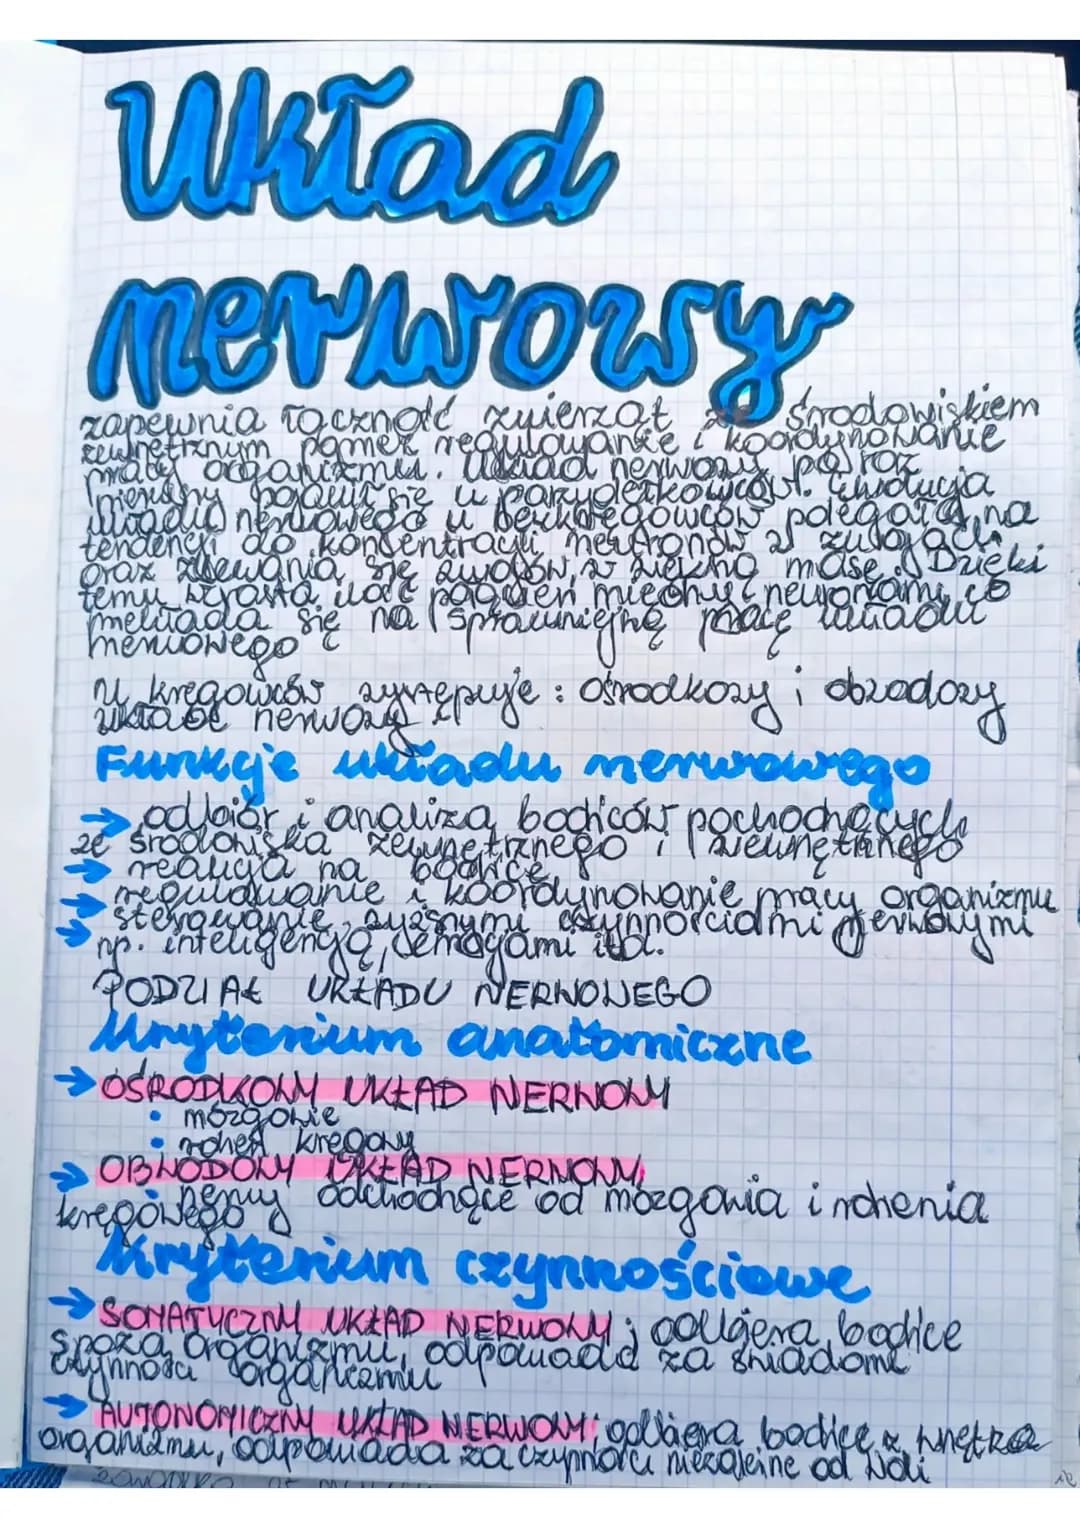 Układ
nerwowy
zapewnia łączność zwierząt ze środowiskiem
zewnętrznym pomez regulowanie i koordynowanie
pracy organizmu. Układ nerwowy po raz
pierwszy pojawił się u parzydełkowców. Ewolucja
układu nerwowego u bezkręgowców polegała na
tendencji do koncentracji neuronów w zwojach
oraz zlewania się zwojów w większą masę. Dzięki
temu wzrasta ilość połączeń między neuronami, co
przekłada się na sprawniejszą pracę układu
nerwowego
U kręgowców występuje: ośrodkowy i obwodowy
układ nerwowy
Funkcje układu nerwowego
→ odbiór i analiza bodźców pochodzących
ze środowiska zewnętrznego i wewnętrznego
→ reakcja na bodźce
→ regulowanie i koordynowanie pracy organizmu
→ sterowanie wyższymi czynnościami nerwowymi
np. inteligencją, emocjami itd.
PODZIAŁ UKŁADU NERWOWEGO
Kryterium anatomiczne
→ OŚRODKOWY UKŁAD NERWOWY
• mózgowie
• rdzeń kręgowy
→ OBWODOWY UKŁAD NERWOWY
• nerwy odchodzące od mózgowia i rdzenia
kręgowego
Kryterium czynnościowe
→ SOMATYCZNY UKŁAD NERWOWY; odbiera bodźce
spoza organizmu, odpowiada za świadome
czynności organizmu
→ AUTONOMICZNY UKŁAD NERWOWY; odbiera bodźce z wnętrza
organizmu, odpowiada za czynności niezależne od woli